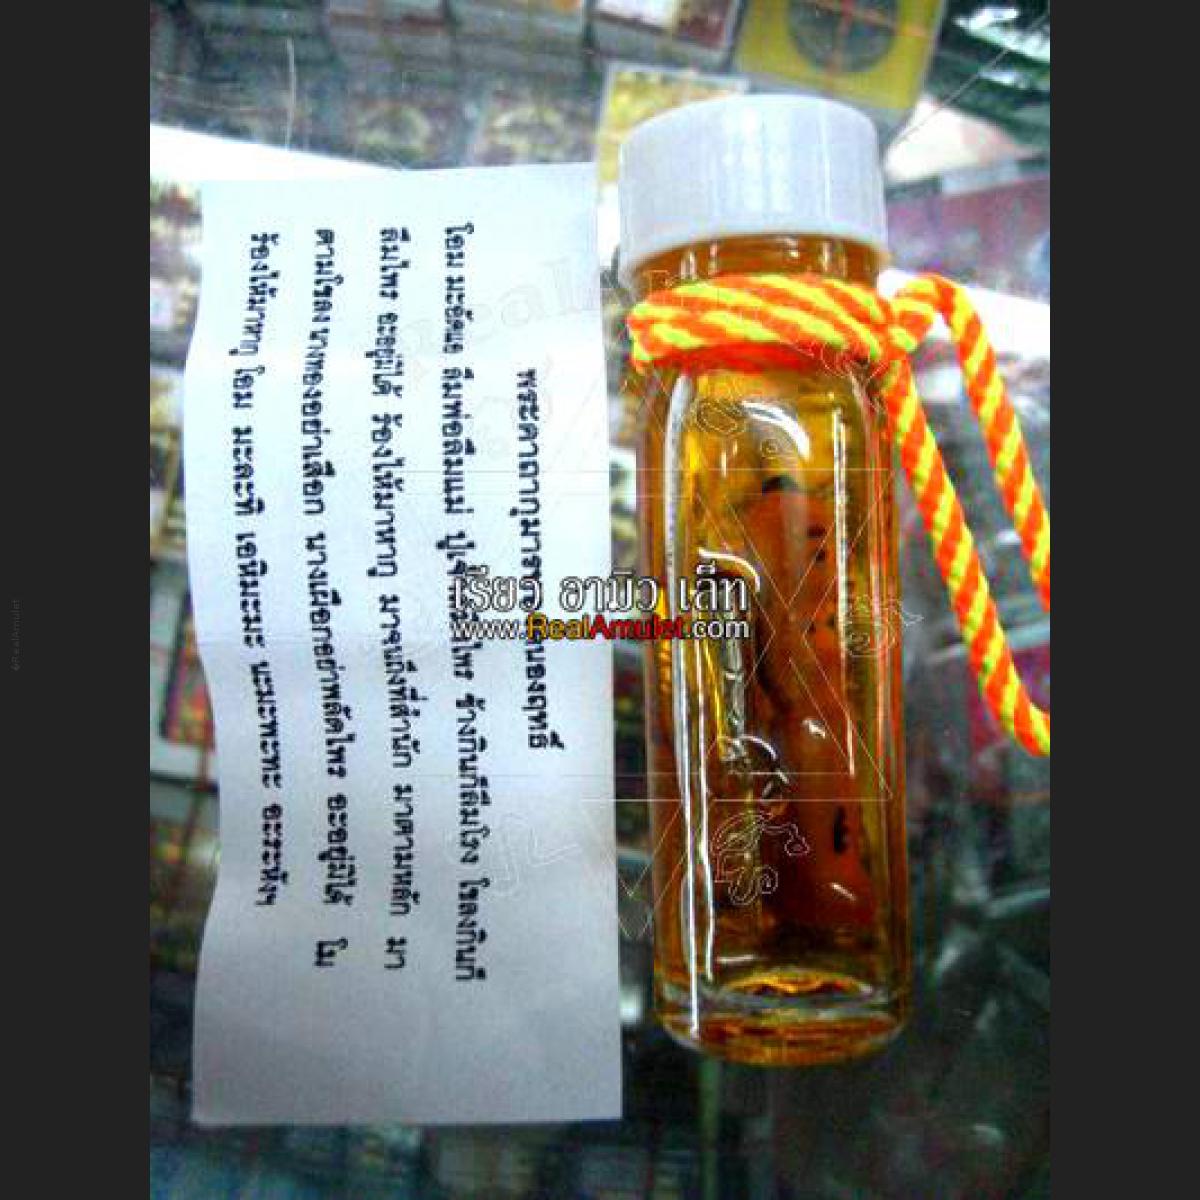 พระคาถากุมารา
นองฤทธิ์
โอม มะอัคนอ ลืมพ่อลืมแม่ ปู่เจ้า ไพร ช้างกินก็ลืมโรง โขลงกินก็
ลืมไพร อะอยู่มิได้ ร้องไห้มาหากู มาจนถึงที่สำนัก มาตามหลัก มา
ตามโขลง นางทองอย่าเลือก นางเผือกอย่าพลัดไพร อะอยู่มิได้ โม
ร้องไห้มาหากู โอม มะละทิ เอหิมะมะ นะมะพะทะ อะระหังฯ
เรียว อามิว เล็ท
www.RealAmulet.com
©RealAmulet